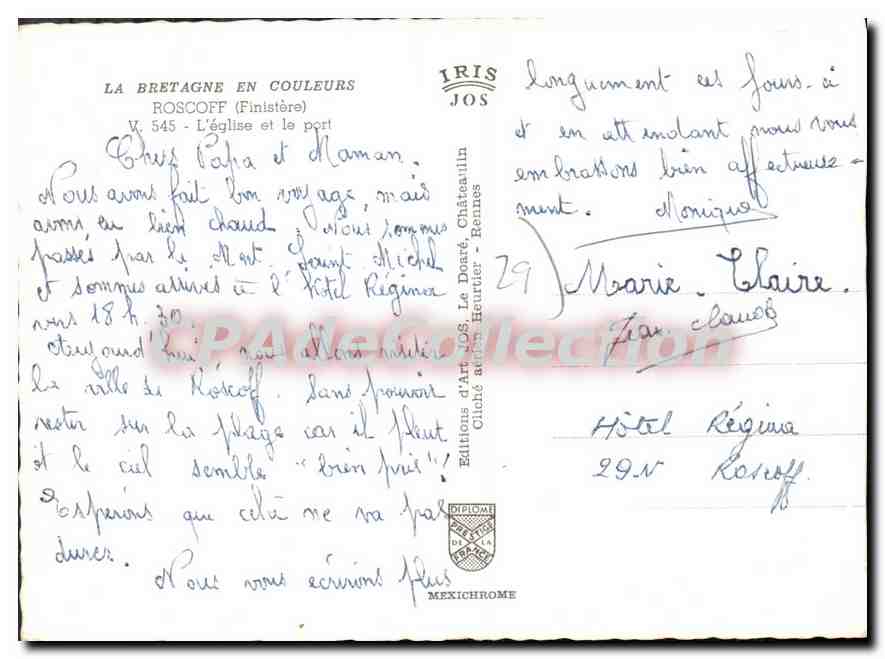 LA BRETAGNE EN COULEURS
ROSCOFF (Finistère)
V. 545 - L'église et le port
IRIS
JOS
Chers Papa et Maman.
Nous avons fait bon voyage, mais
avons eu bien chaud. Nous sommes
passés par le Mont Saint Michel
et sommes arrivés à l'hôtel Régina
vers 18 h. 30
Aujourd'hui nous allons visiter
la ville de Roscoff. Sans pouvoir
rester sur la plage car il pleut
et le ciel semble "bien pris"!
Espérons que celà ne va pas
durer.
Nous vous écrirons plus
longuement ces jours-ci
et en attendant nous vous
embrassons bien affectueuse-
ment. Monique
29
Marie-Claire.
Jean Claude
Hôtel Régina
29.N Roscoff.
Editions d'Art JOS, Le Doaré, Châteaulin
Cliché aérien Heurtier - Rennes
DIPLOME
PRESTIGE
DE LA
FRANCE
MEXICHROME
CPAdeCollection